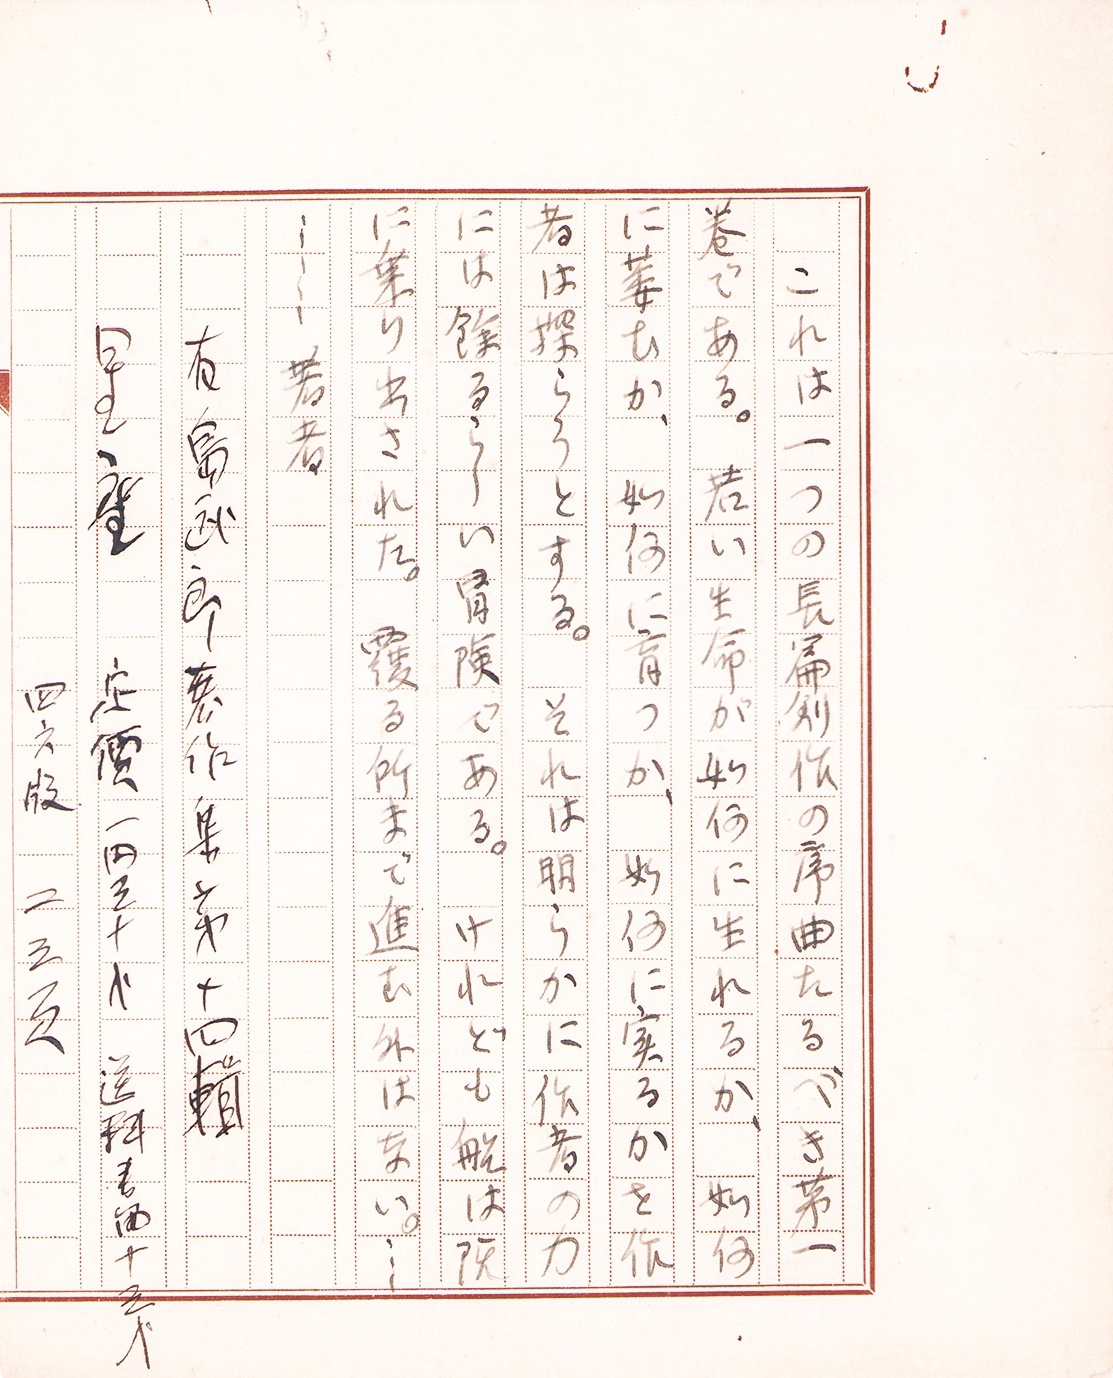 これは一つの長篇創作の序曲たるべき第一
巻である。若い生命が如何に生れるか、如何
に萎むか、如何に育つか、如何に実るかを作
者は探らうとする。それは明らかに作者の力
には餘るらしい冒険である。けれども船は既
に乗り出された。覆る所まで進む外はない。……
………著者
有島武郎著作集第十四輯
星座 定價一円五十戋 送料書留十五戋
四六版 二三頁